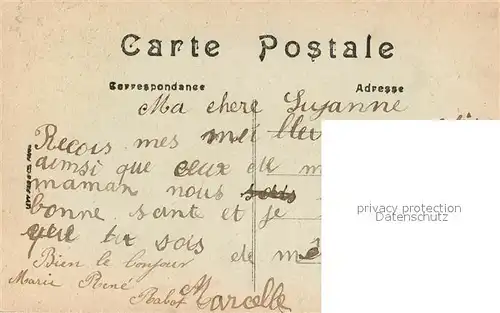 Carte Postale
Correspondance Adresse
Ma chere Suzanne
Recois mes mei lleu
ainsi que ceux de m
maman nous sous
bonne sante et je
que tu sois de mê
Bien le bonjour
Marie René
Rabot Marcelle
privacy protection
Datenschutz